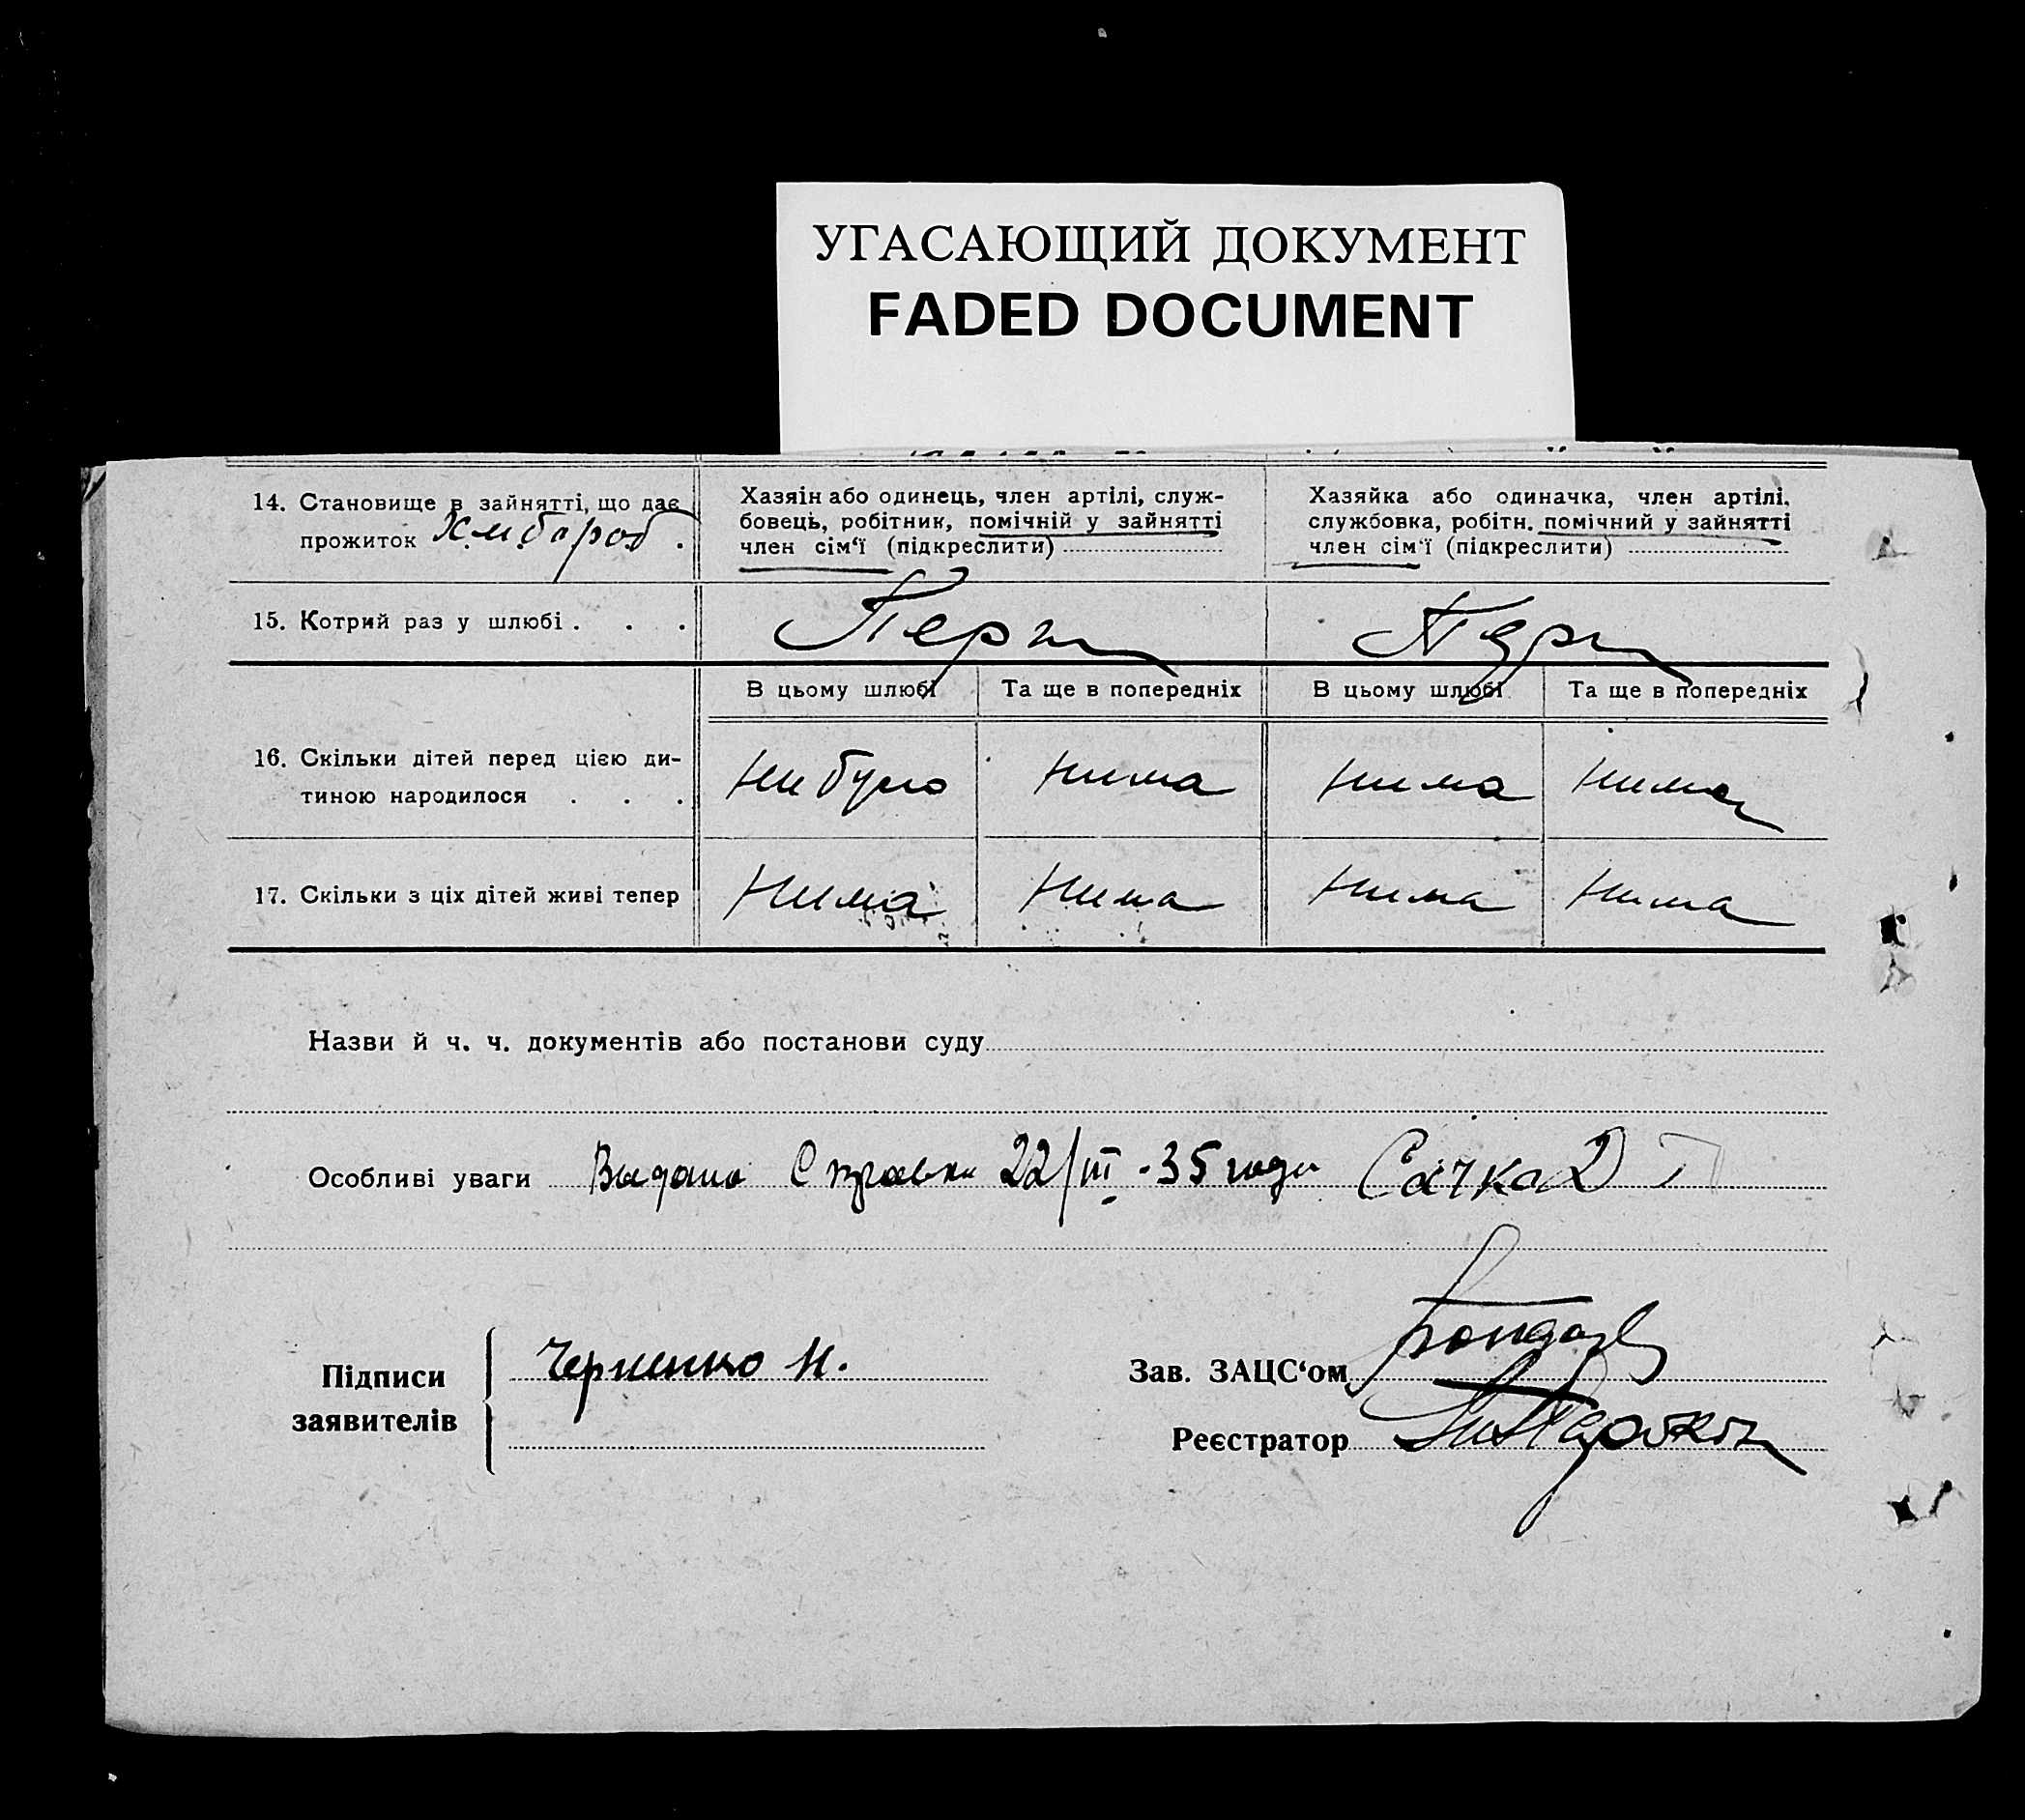 УГАСАЮЩИЙ ДОКУМЕНТ
FADED DOCUMENT
14. Становище в зайнятті, що дає
прожиток Хлибороб .
Хазяін або одинець, член артілі, служ-
бовець, робітник, помічній у зайнятті
член сім'ї (підкреслити)
Хазяйка або одиначка, член артілі,
службовка, робітн. помічний у зайнятті
член сім'ї (підкреслити)
15. Котрий раз у шлюбі . . . Перш Перш
В цьому шлюбі Та ще в попередніх В цьому шлюбі Та ще в попередніх
16. Скільки дітей перед цією ди-
тиною народилося . . . Ни було Нима Нима Нима
17. Скільки з ціх дітей живі тепер Нима Нима Нима Нима
Назви й ч. ч. документів або постанови суду
Особливі уваги Выдана Справка 22/III - 35 года Сачко
Підписи
заявителів
Черненко Н.
Зав. ЗАЦС'ом
Реєстратор